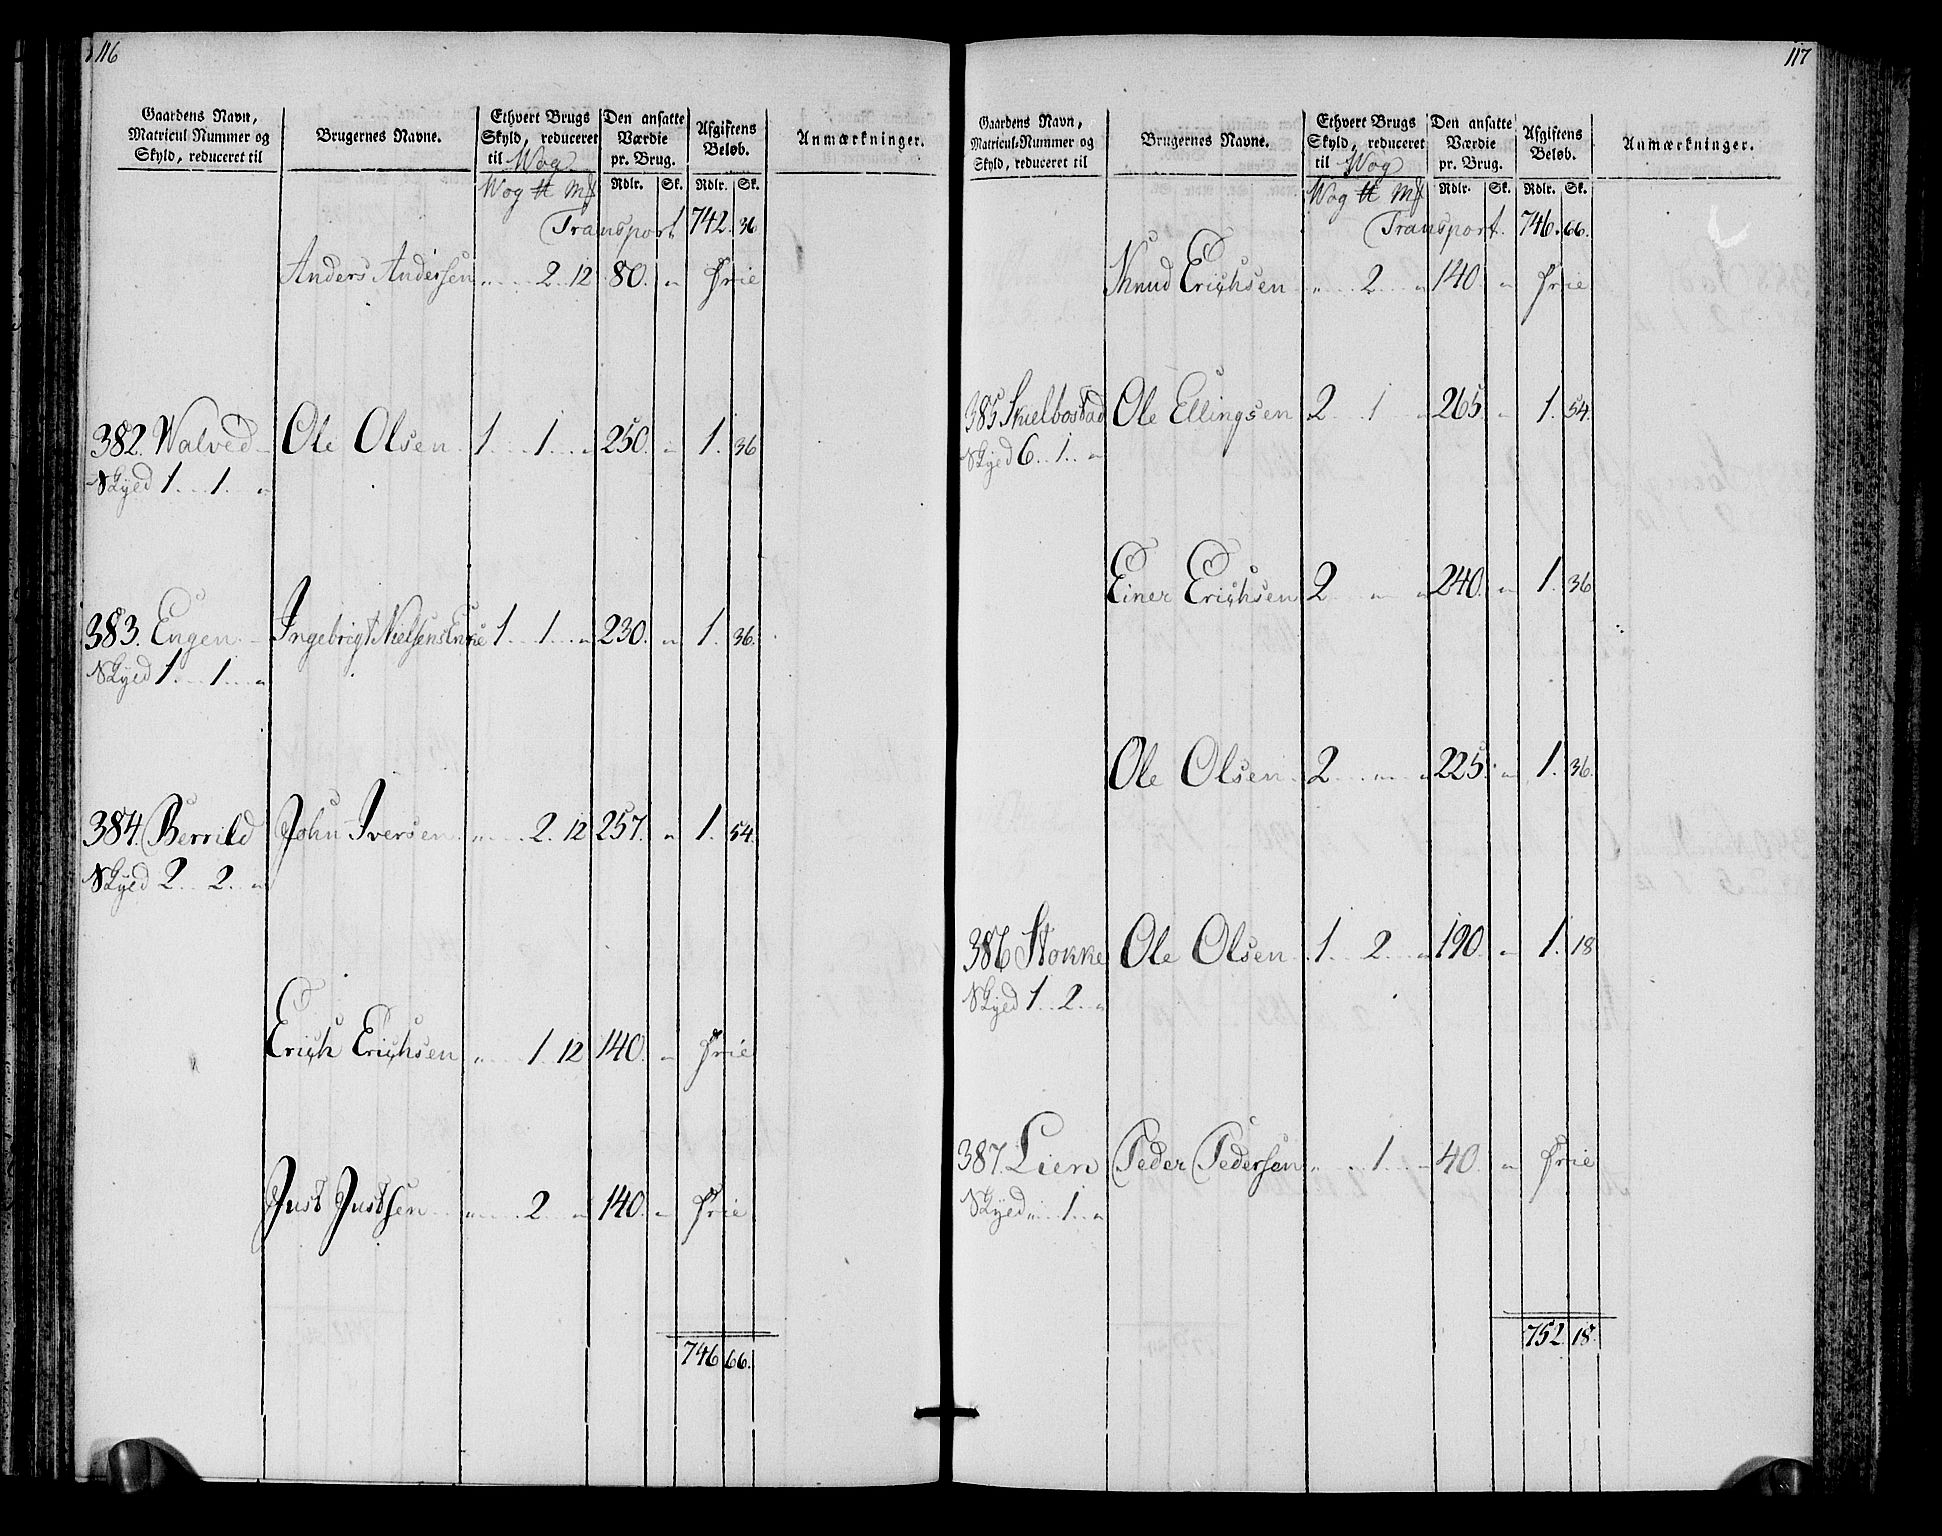 116
Gaardens Navn, Matricul Nummer og Skyld, reduceret til | Brugernes Navne. | Ethvert Brugs Skyld, reduceret til Wog | Den ansatte Værdie pr. Brug. | Afgiftens Beløb. | Anmærkninger.
Wog ℔ Mk | Rdlr. | Sk. | Rdlr. | Sk.
Transport 742. 36
Anders Andersen „ 2. 12 80. „ Frie
382. Walved Ole Olsen 1. 1. „ 250. „ 1. 36
Skyld 1. 1. „
383. Engen Ingebrigt Nielsens Enke 1. 1. „ 230. „ 1. 36.
Skyld 1. 1. „
384. Berrild John Iversen „ 2. 12 257. „ 1. 54.
Skyld 2. 2. „
Erich Erichsen „ 1. 12 140. „ Frie
Just Justsen „ 2. „ 140. „ Frie
746 66.
117
Gaardens Navn, Matricul-Nummer og Skyld, reduceret til | Brugernes Navne. | Ethvert Brugs Skyld, reduceret til Wog | Den ansatte Værdie pr. Brug. | Afgiftens Beløb. | Anmærkninger.
Wog ℔ Mk | Rdlr. | Sk. | Rdlr. | Sk.
Transport. 746. 66.
Knud Erichsen „ 2. „ 140. „ Frie
385 Skielbostad Ole Ellingsen 2. 1 „ 265. „ 1. 54.
Skyld 6. 1. „
Einer Erichsen 2 „ „ 240. „ 1. 36
Ole Olsen 2. „ „ 225. „ 1. 36.
386 Stokke Ole Olsen 1. 2. „ 190. „ 1. 18
Skyld 1. 2. „
387. Lien Peder Pedersen „ 1. „ 40. „ Frie
Skyld „ 1. „
752 18.